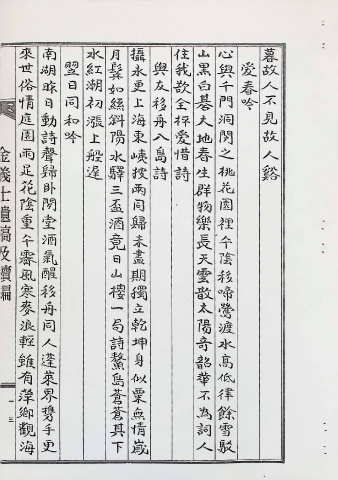 暮故人不見故人谿
愛春吟
心與千門洞閉之桃花園裡午陰移啼鶯渡水高低律餘雪駁
山黑白碁大地春生群物樂長天雲散太陽奇韶華不為詞人
住我欲金杯愛惜詩
與友移舟八島詩
攝永更上海東峽挍雨同歸未盡期獨立乾坤身似粟無情歲
月鬂如絲斜陽水驛三盃酒竟日山樓一局詩鰲島蒼蒼其下
水紅潮初漲上般遲
翌日同和吟
南湖昨日動詩聲歸卧閒堂酒氣醒移舟同人蓬萊界勞手更
來世俗情庭園雨足花陰重午霽風寒麥浪輕雖有萍鄉觀海
金義士遺稿及續編
一三